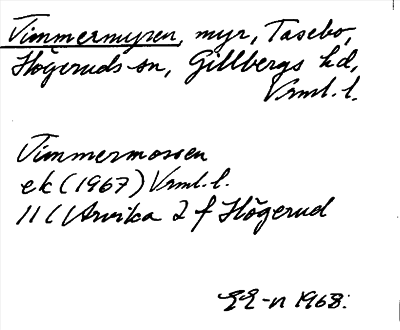 Timmermyren, myr, Tasebo,
Högeruds sn, Gillbergs hd,
Vrml. l.
Timmermossen
ek (1967) Vrml. l.
11 C Arvika 2 f Högerud
EE-n 1968.